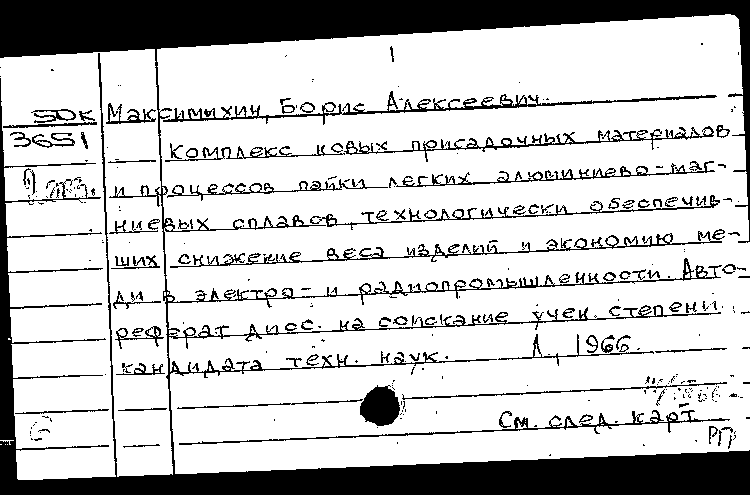 1
50к Максимихин, Борис Алексеевич.
3651 Комплекс новых присадочных материалов
2 экз. и процессов пайки легких алюминиево-маг-
ниевых сплавов, технологически обеспечив-
ших снижение веса изделий и экономию ме-
ди в электро- и радиопромышленности. Авто-
реферат дисс. на соискание учен. степени
кандидата техн. наук. Л., 1966.
См. след. карт.
РГР